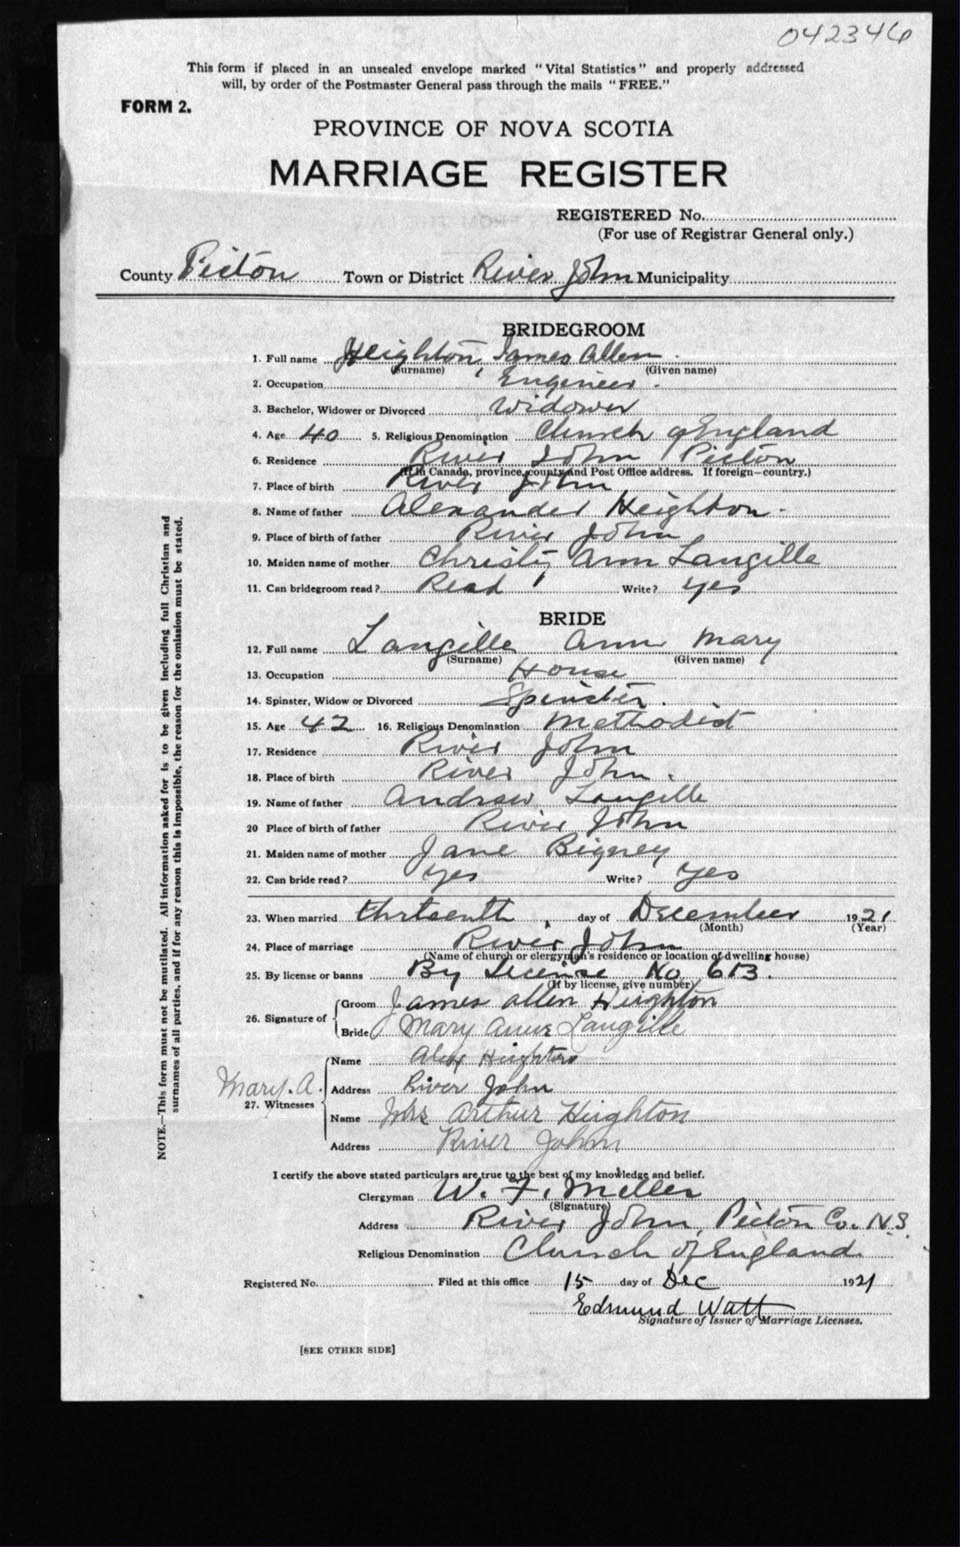 042346
This form if placed in an unsealed envelope marked "Vital Statistics" and properly addressed
will, by order of the Postmaster General pass through the mails "FREE."
FORM 2.
PROVINCE OF NOVA SCOTIA
MARRIAGE REGISTER
REGISTERED No.
(For use of Registrar General only.)
County Pictou Town or District River John Municipality
BRIDEGROOM
1. Full name Heighton, James Allen.
(Surname) (Given name)
2. Occupation Engineer.
3. Bachelor, Widower or Divorced Widower
4. Age 40 5. Religious Denomination Church of England
6. Residence River John Pictou
(If in Canada, province, county and Post Office address. If foreign—country.)
7. Place of birth River John
8. Name of father Alexander Heighton.
9. Place of birth of father River John
10. Maiden name of mother Christy Ann Langille
11. Can bridegroom read? Read Write? yes
BRIDE
12. Full name Langille Ann Mary
(Surname) (Given name)
13. Occupation House
14. Spinster, Widow or Divorced Spinster.
15. Age 42 16. Religious Denomination Methodist
17. Residence River John
18. Place of birth River John.
19. Name of father Andrew Langille
20 Place of birth of father River John
21. Maiden name of mother Jane Bigney
22. Can bride read? yes Write? yes
23. When married thirteenth day of December 1921
(Month) (Year)
24. Place of marriage River John
(Name of church or clergyman's residence or location of dwelling house)
25. By license or banns By License No 613.
(If by license, give number)
26. Signature of
Groom James Allen Heighton
Bride Mary Anne Langille
Mary. A.
27. Witnesses
Name Alex Heighton
Address River John
Name Mrs Arthur Heighton
Address River John
NOTE.—This form must not be mutilated. All information asked for is to be given including full Christian and
surnames of all parties, and if for any reason this is impossible, the reason for the omission must be stated.
I certify the above stated particulars are true to the best of my knowledge and belief.
Clergyman W. F. Meller
(Signature)
Address River John, Pictou Co. N.S.
Religious Denomination Church of England.
Registered No. Filed at this office 15 day of Dec 1921
Edmund Watt
Signature of Issuer of Marriage Licenses.
[SEE OTHER SIDE]